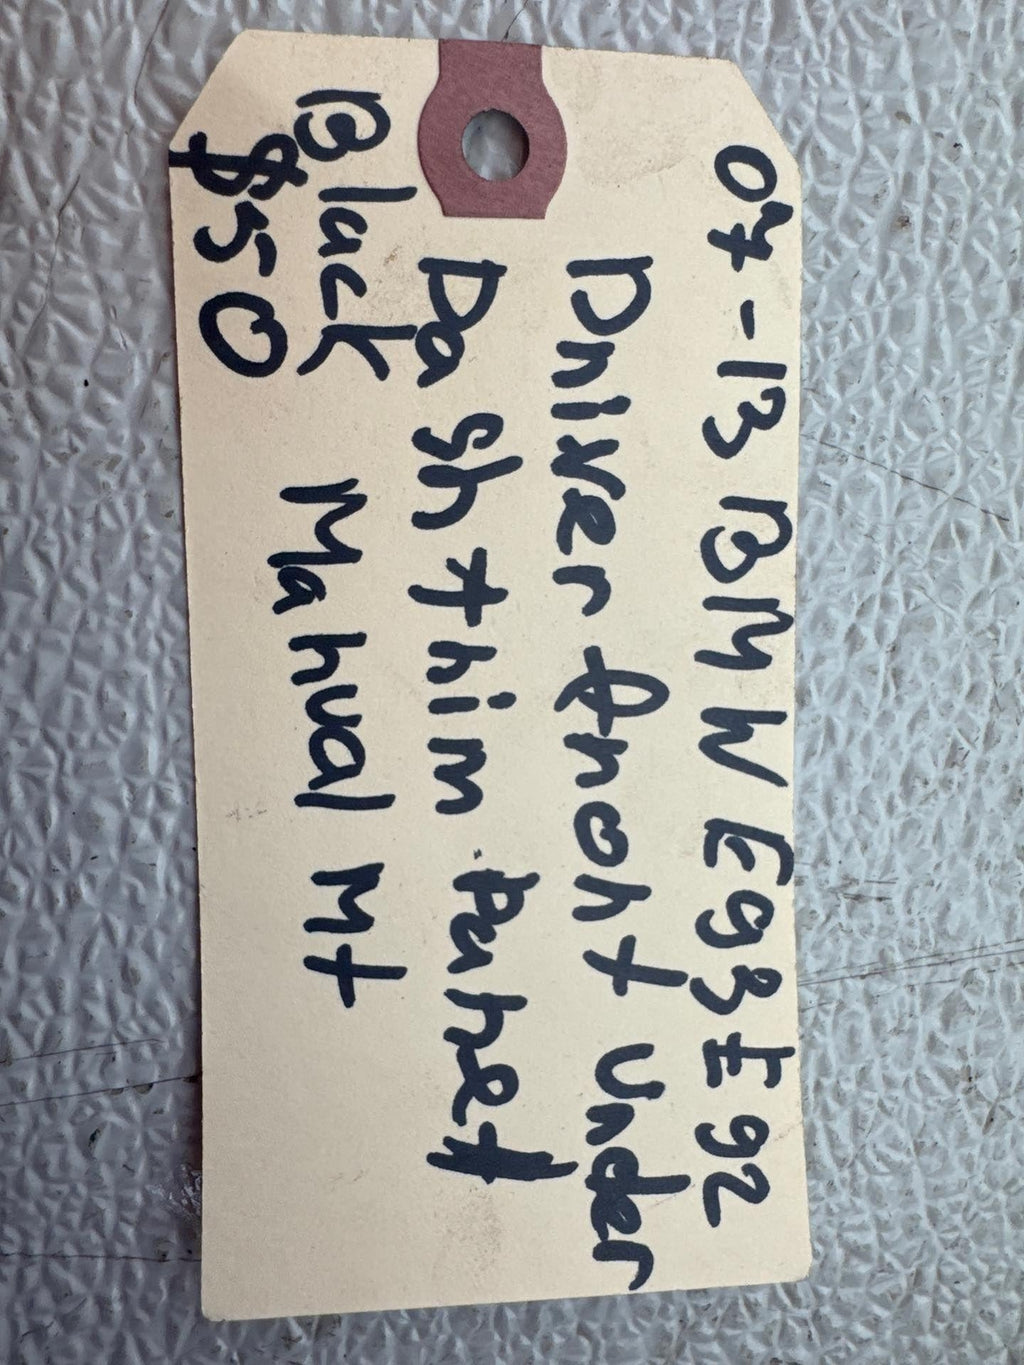 07-13 BMW E93 E92
Driver front under
Dash trim panel
Black Manual MT
$50